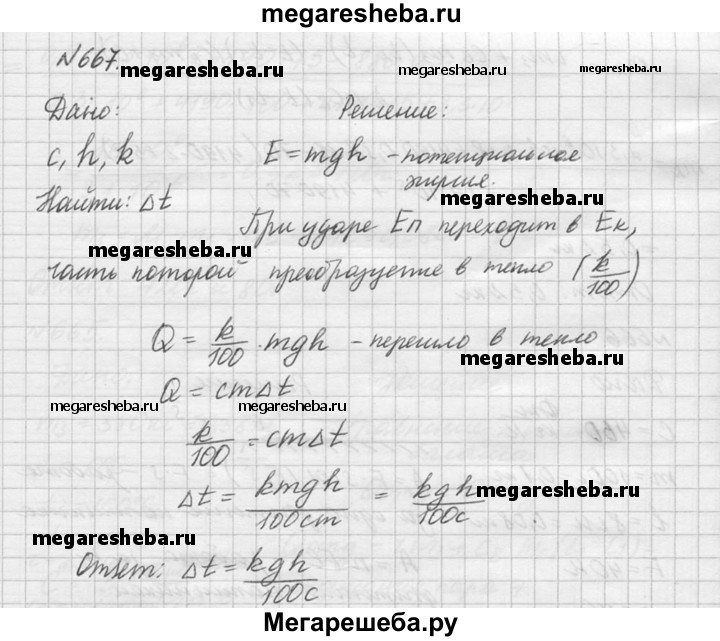 megaresheba.ru
№667.
megaresheba.ru megaresheba.ru megaresheba.ru
Дано: Решение:
c, h, k E = mgh - потенциальная энергия.
Найти: Δt
При ударе Eп переходит в Eк,
megaresheba.ru
часть которой преобразуется в тепло (k/100)
Q = k/100 · mgh - перешло в тепло
megaresheba.ru
Q = cmΔt
megaresheba.ru megaresheba.ru megaresheba.ru
k/100 = cmΔt
Δt = kmgh/100cm = kgh/100c
megaresheba.ru
megaresheba.ru
Ответ: Δt = kgh/100c
Мегарешеба.ру